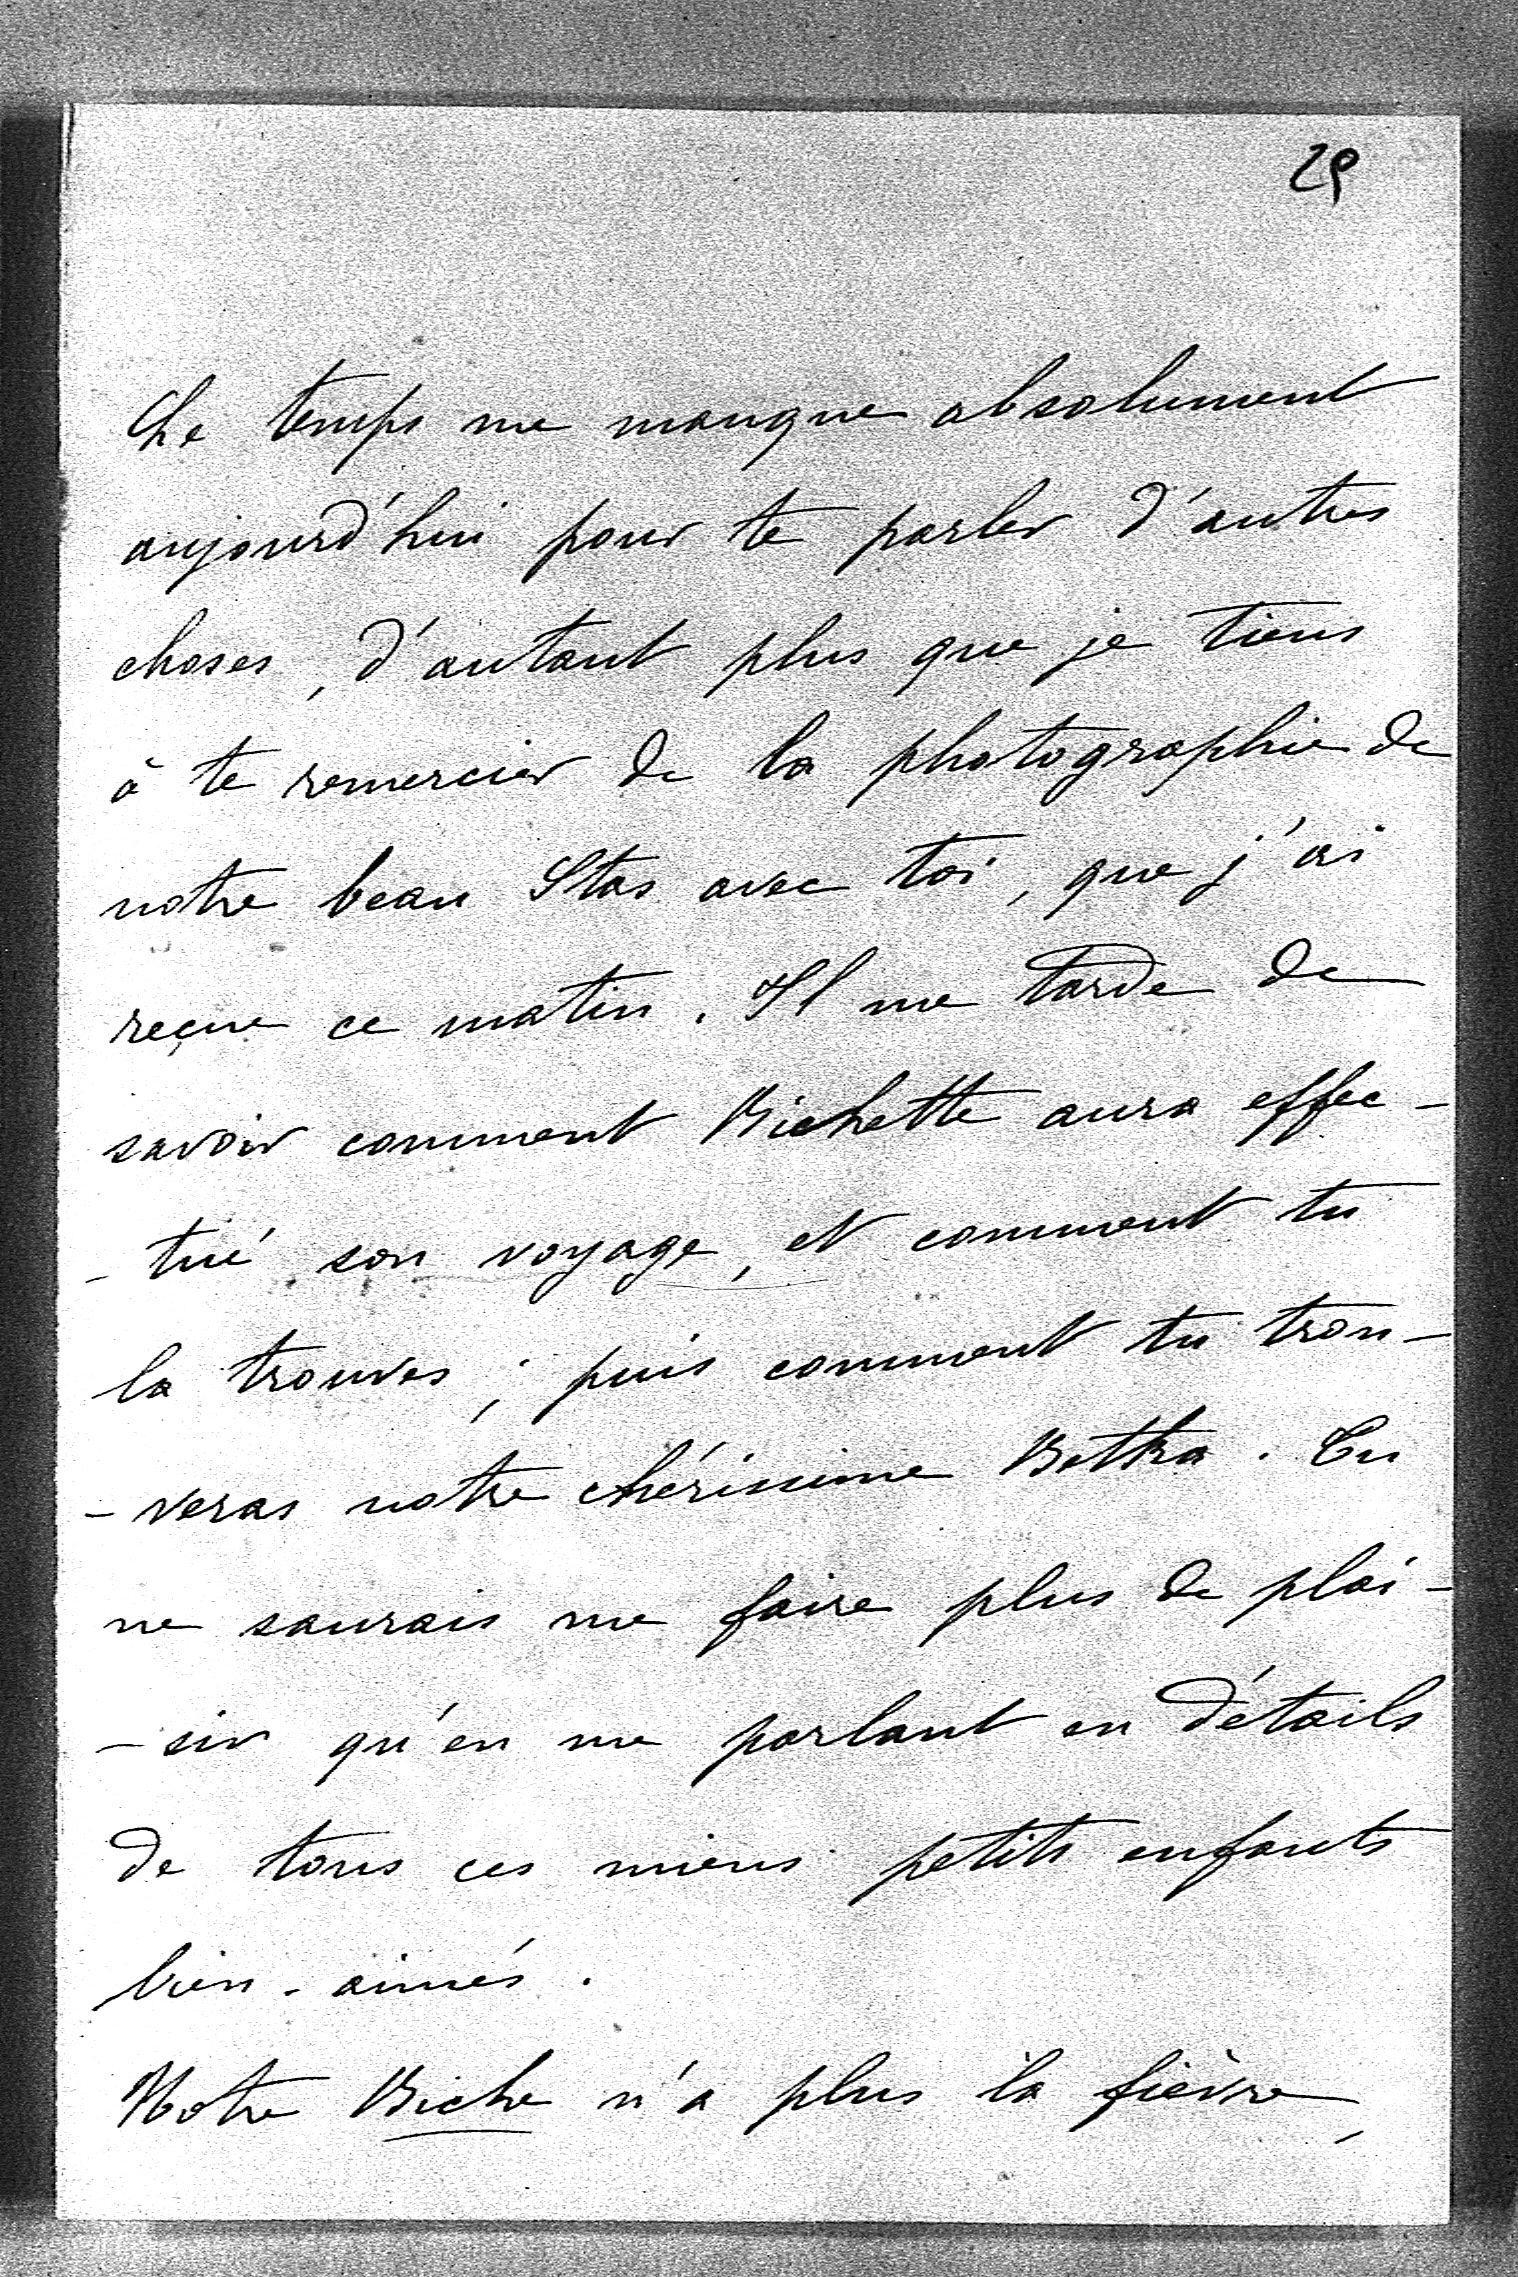 29
Le temps me manque absolument
aujourd'hui pour te parler d'autres
choses, d'autant plus que je tiens
à te remercier de la photographie de
notre beau Stas avec toi, que j'ai
reçue ce matin. Il me tarde de
savoir comment Bichette aura effec-
-tué son voyage, et comment tu
la trouves; puis comment tu trou-
-veras notre chérissime Bettka. Tu
ne saurais me faire plus de plai-
-sir qu'en me parlant en détails
de tous ces miens petits enfants
bien-aimés.
Notre Biche n'a plus la fièvre,